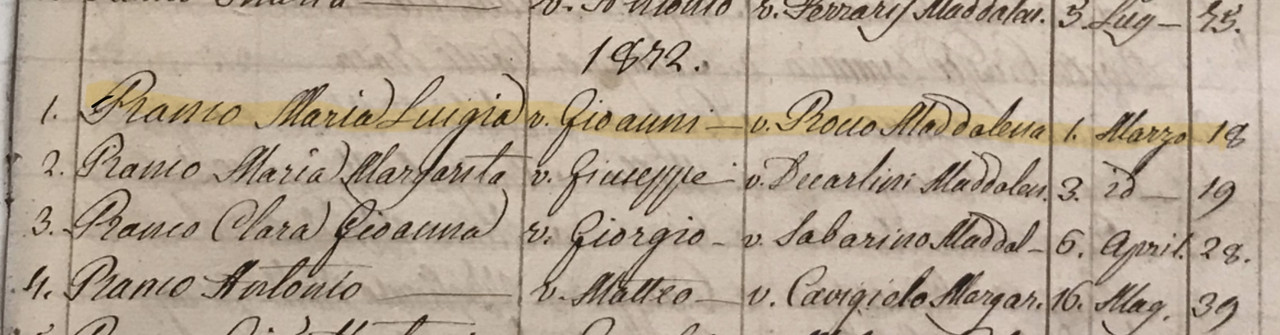 v. Antonio v. Ferraris Maddalen. 3. Lug— 25.
1872.
1. Ramo Maria Luigia v. Gioanni — v. Rocco Maddalena 1. Marzo 18
2. Ramo Maria Margarita v. Giuseppe - v. Decarlini Maddalen. 3. id — 19
3. Ramo Clara Gioanna v. Giorgio - v. Sabarino Maddal— 6. April. 28.
4. Ramo Antonio — v. Matteo — v. Cavigiolo Margar. 16. Mag. 39